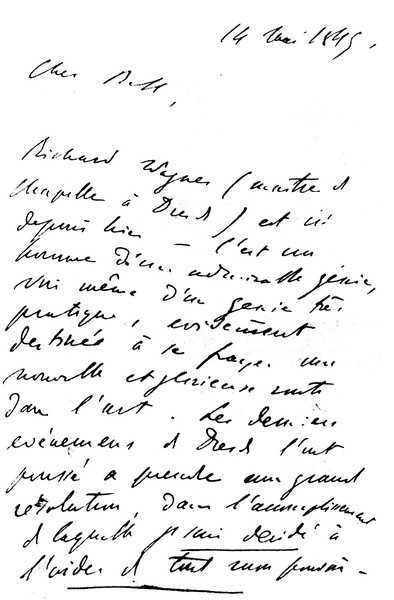 14 Mai 1849,
Cher B
Richard Wagner (maitre de
chapelle à Dresde) est ici
depuis hier — C'est un
homme d'un admirable génie,
oui même d'un genie très
pratique, evidement
destinée à se frayer une
nouvelle et glorieuse route
dans l'art. Les derniers
evénemens de Dresde l'ont
poussé a prendre une grande
résolution, dans l'accomplissement
de laquelle je suis décidé à
l'aider de tout mon pouvoir —